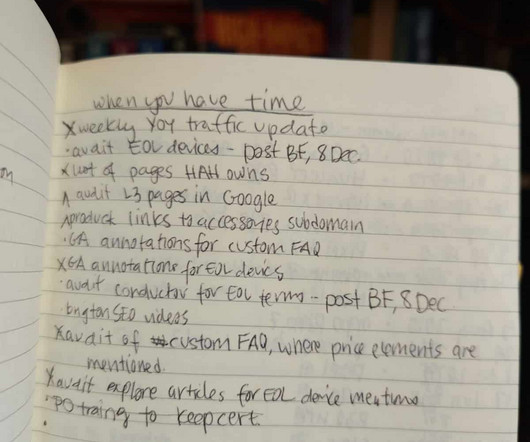 when you have time
X weekly YOY traffic update
· audit EOL devices - post BF, 8 Dec.
X list of pages HAH owns
^ audit L3 pages in Google
^ product links to accessories subdomain
· GA annotations for custom FAQ
X GA annotations for EOL devices
· audit conductor for EOL terms - post BF, 8 Dec
· brighton SEO videos
X audit of custom FAQ, where price elements are
mentioned.
X audit explore articles for EOL device mentions
· PO training to keep cert.
·